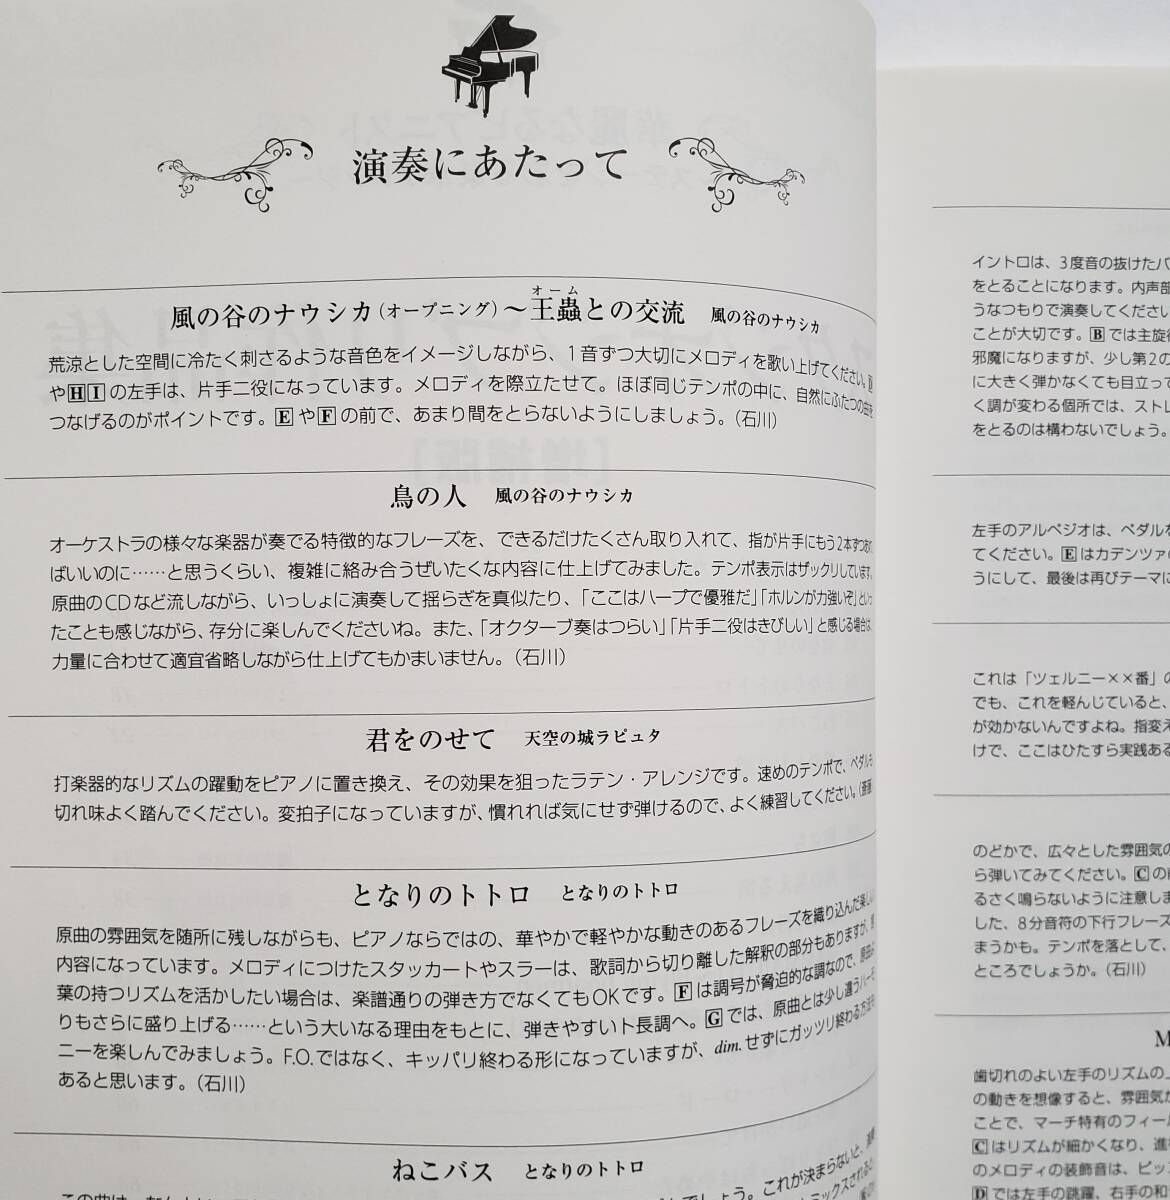 演奏にあたって
オーム
風の谷のナウシカ(オープニング)～王蟲との交流 風の谷のナウシカ
荒涼とした空間に冷たく刺さるような音色をイメージしながら、1音ずつ大切にメロディを歌い上げてください。
やHIの左手は、片手二役になっています。メロディを際立たせて。ほぼ同じテンポの中に、自然にふたつの曲を
つなげるのがポイントです。EやFの前で、あまり間をとらないようにしましょう。(石川)
鳥の人 風の谷のナウシカ
オーケストラの様々な楽器が奏でる特徴的なフレーズを、できるだけたくさん取り入れて、指が片手にもう2本ずつあれ
ばいいのに……と思うくらい、複雑に絡み合うぜいたくな内容に仕上げてみました。テンポ表示はザックリしています。
原曲のCDなど流しながら、いっしょに演奏して揺らぎを真似たり、「ここはハープで優雅だ」「ホルンが力強いぞ」といっ
たことも感じながら、存分に楽しんでくださいね。また、「オクターブ奏はつらい」「片手二役はきびしい」と感じる場合は、
力量に合わせて適宜省略しながら仕上げてもかまいません。(石川)
君をのせて 天空の城ラピュタ
打楽器的なリズムの躍動をピアノに置き換え、その効果を狙ったラテン・アレンジです。速めのテンポで、ペダルも
切れ味よく踏んでください。変拍子になっていますが、慣れれば気にせず弾けるので、よく練習してください。
となりのトトロ となりのトトロ
原曲の雰囲気を随所に残しながらも、ピアノならではの、華やかで軽やかな動きのあるフレーズを織り込んだ楽しい
内容になっています。メロディにつけたスタッカートやスラーは、歌詞から切り離した解釈の部分もありますが、
葉の持つリズムを活かしたい場合は、楽譜通りの弾き方でなくてもOKです。Fは調号が脅迫的な調なので、原曲よ
りもさらに盛り上げる……という大いなる理由をもとに、弾きやすいト長調へ。Gでは、原曲とは少し違うハーモ
ニーを楽しんでみましょう。F.O.ではなく、キッパリ終わる形になっていますが、dim.せずにガッツリ終わる方法も
あると思います。(石川)
ねこバス となりのトトロ
イントロは、3度音の抜けたパ
をとることになります。内声部
うなつもりで演奏してください
ことが大切です。Bでは主旋律
邪魔になりますが、少し第2の
に大きく弾かなくても目立って
く調が変わる個所では、ストレ
をとるのは構わないでしょう。
左手のアルペジオは、ペダルを
てください。Eはカデンツァの
うにして、最後は再びテーマに
これは「ツェルニー××番」の
でも、これを軽んじていると、
が効かないんですよね。指変え
けで、ここはひたすら実践ある
のどかで、広々とした雰囲気の
ら弾いてみてください。Cの前
るさく鳴らないように注意しま
した、8分音符の下行フレーズ
まうかも。テンポを落として、
ところでしょうか。(石川)
M
歯切れのよい左手のリズムの上
の動きを想像すると、雰囲気が
ことで、マーチ特有のフィール
Cはリズムが細かくなり、進
のメロディの装飾音は、ピッ
Dでは左手の跳躍、右手の和